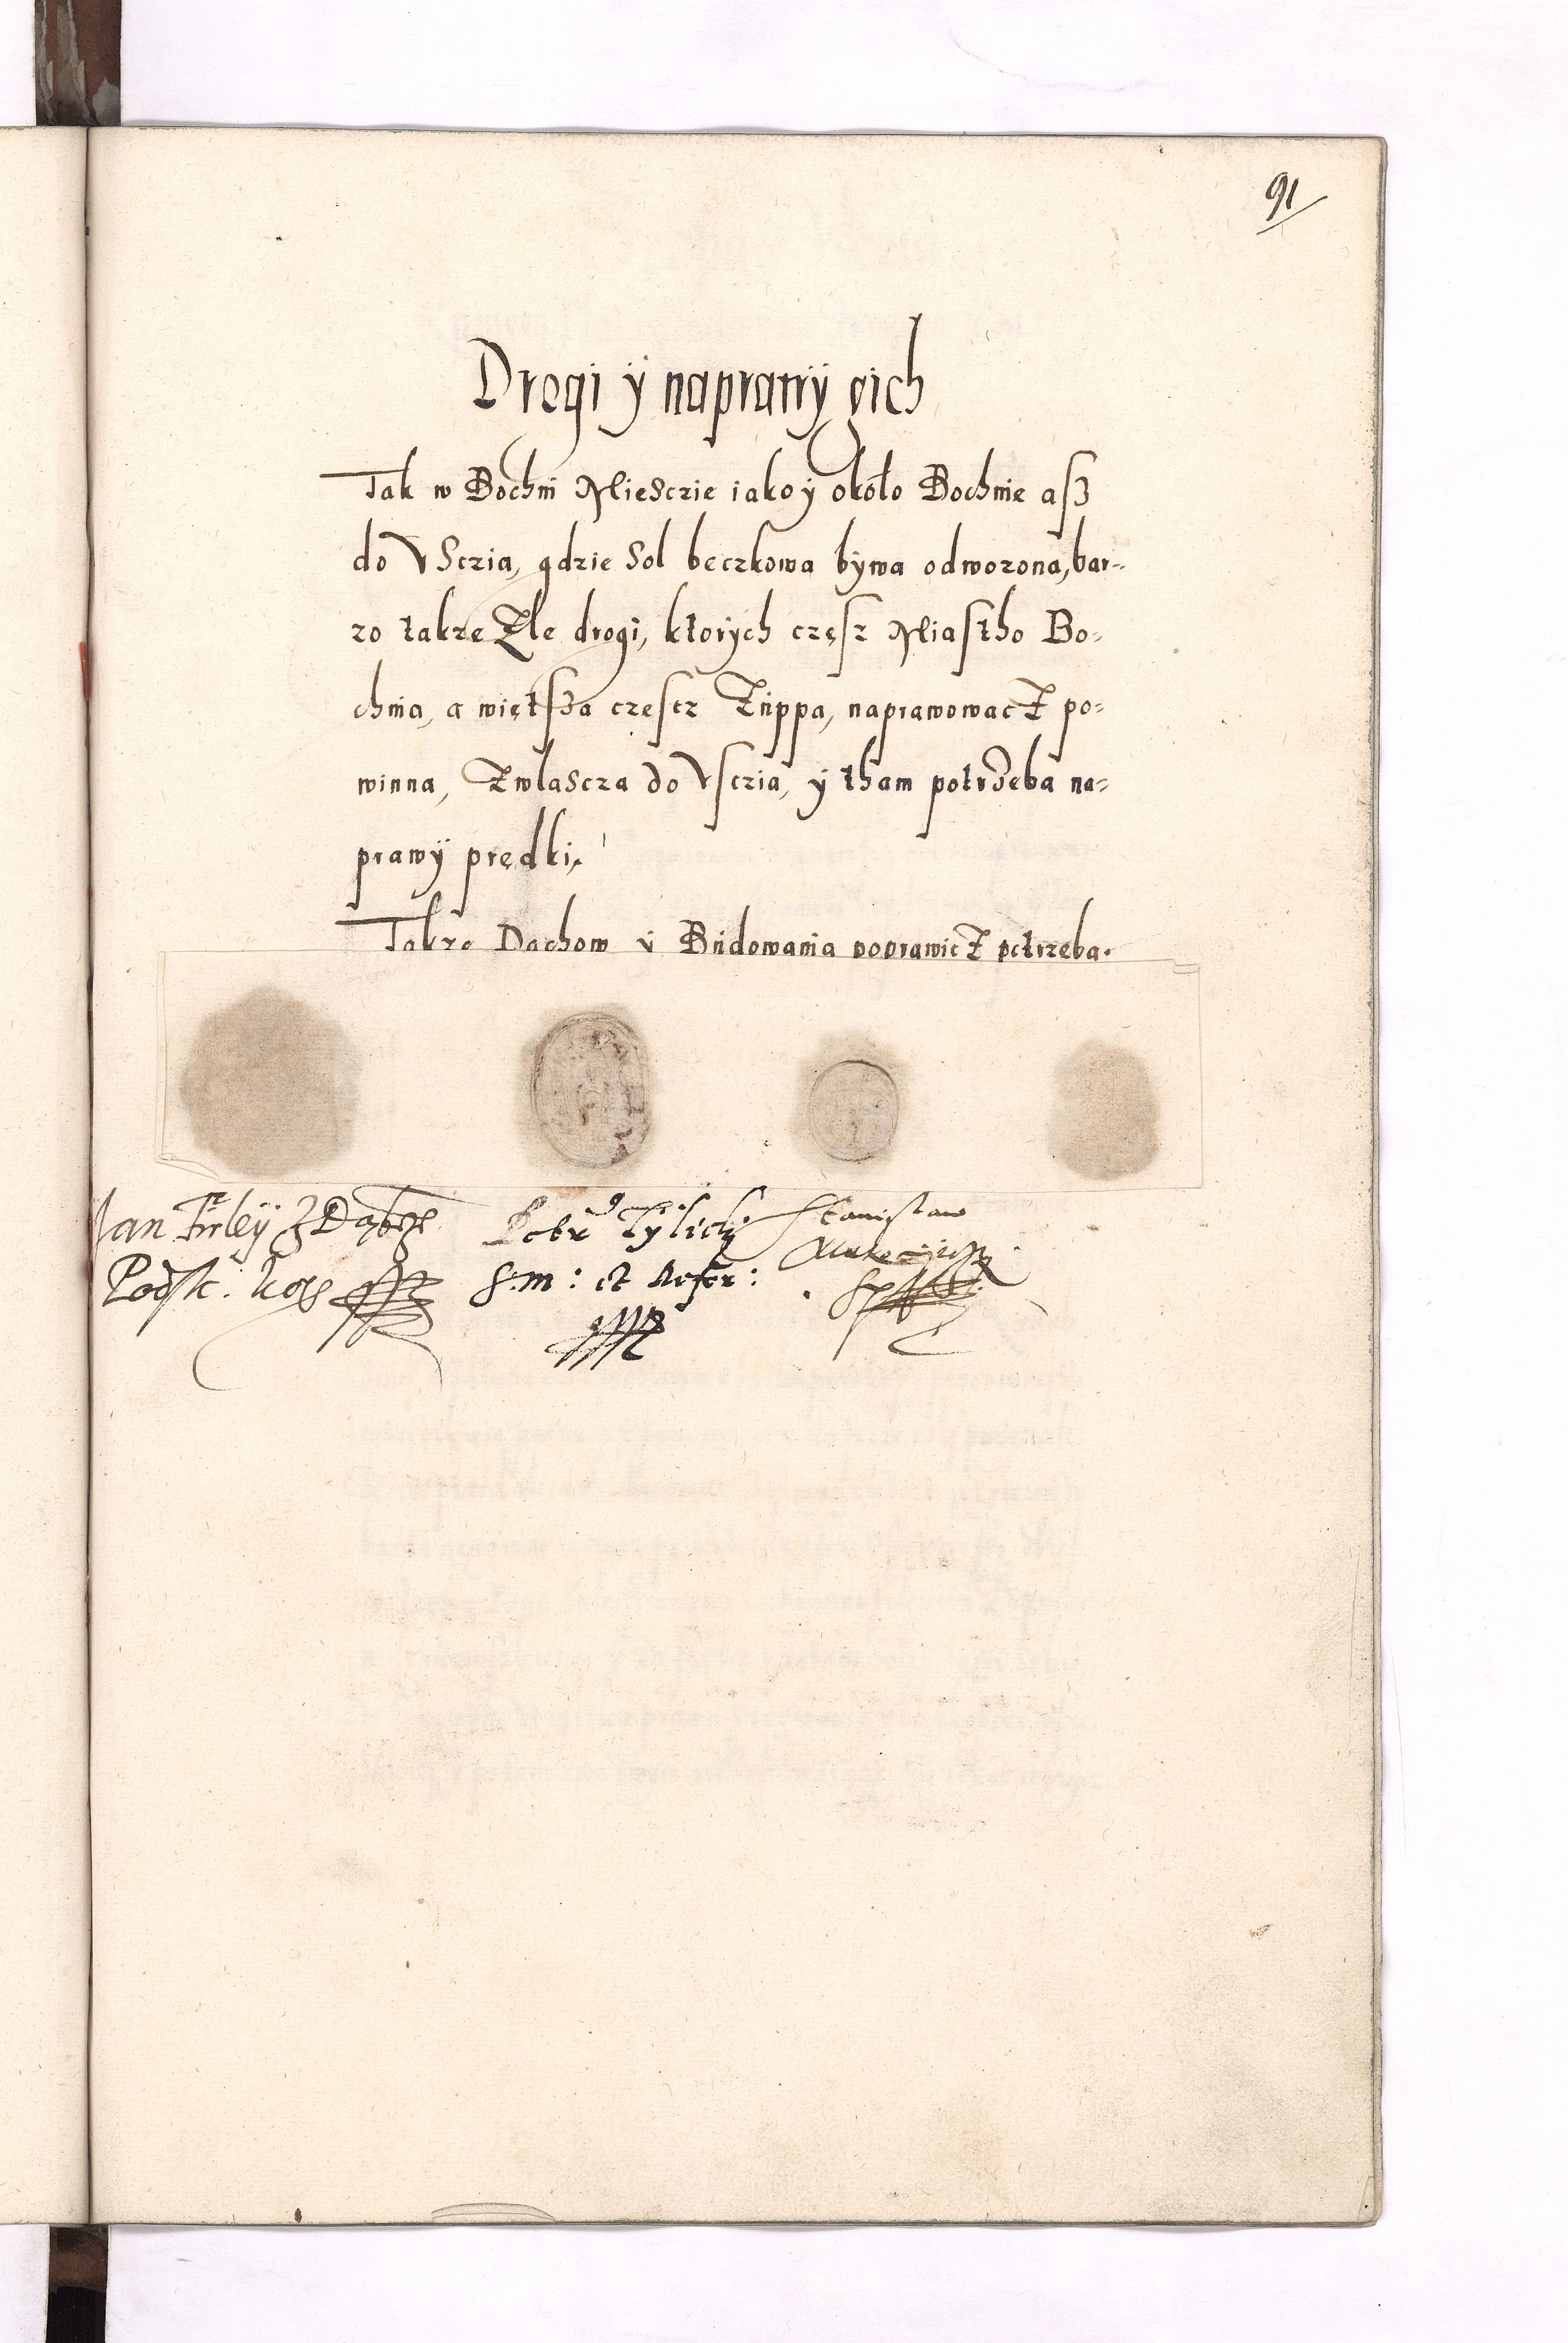 91
Drogi ÿ naprawÿ gich
Tak w Bochni Miesczie iako ÿ około Bochnie asz
do Vsczia, gdzie Sol beczkowa bÿwa odwozona, bar-
zo takze Zle drogi, ktorÿch częsz Miastho Bo-
chnia, a więtsza czescz Zuppa, naprawowacz po-
winna, Zwlascza do Vsczia, ÿ tham potrzeba na-
prawÿ prędki,
Takze Dachow ÿ Budowania poprawicz potrzeba.
Jan Firleÿ z Dąbro
Podsk. kor
Petrus Tylicki
S. m: et Refer:
Stanislaw